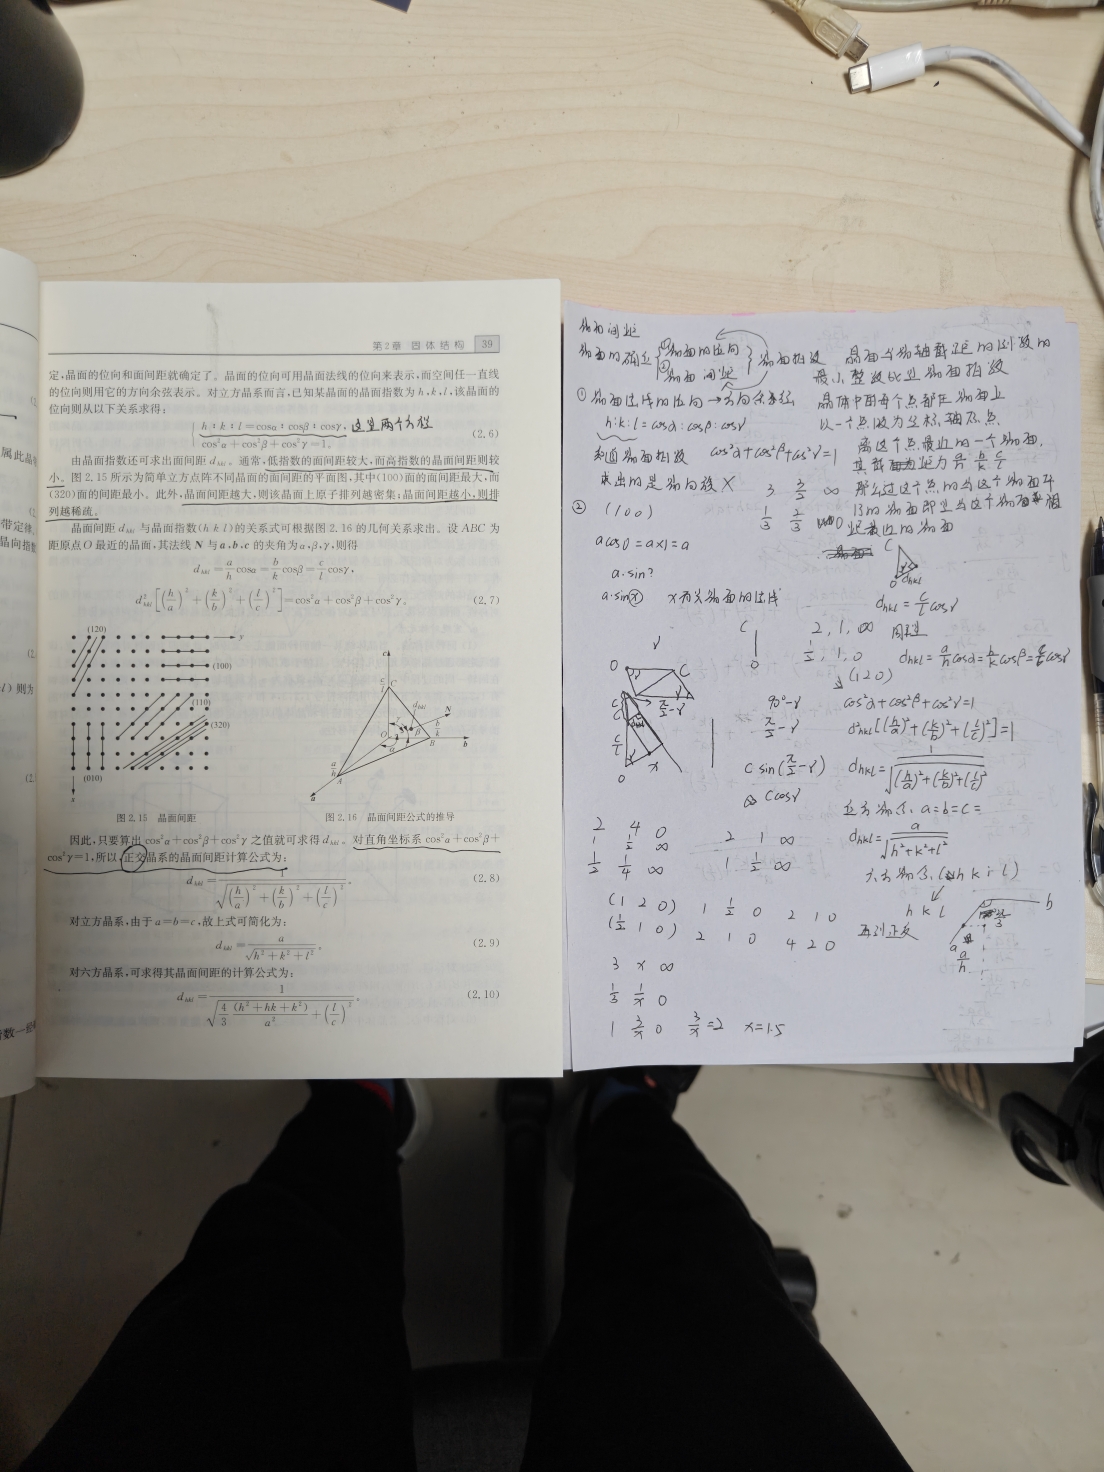 第2章 固体结构 39
定,晶面的位向和面间距就确定了。晶面的位向可用晶面法线的位向来表示,而空间任一直线
的位向则用它的方向余弦表示。对立方晶系而言,已知某晶面的晶面指数为h,k,l,该晶面的
位向则从以下关系求得:
h:k:l=cosα:cosβ:cosγ, 这里两个方程
cos²α+cos²β+cos²γ=1。 (2.6)
由晶面指数还可求出面间距 d_hkl。通常,低指数的面间距较大,而高指数的晶面间距则较
小。图2.15所示为简单立方点阵不同晶面的面间距的平面图,其中(100)面的面间距最大,而
(320)面的间距最小。此外,晶面间距越大,则该晶面上原子排列越密集;晶面间距越小,则排
列越稀疏。
晶面间距 d_hkl 与晶面指数(h k l)的关系式可根据图2.16的几何关系求出。设ABC为
距原点O最近的晶面,其法线N与a,b,c的夹角为α,β,γ,则得
d_hkl=a/h cosα=b/k cosβ=c/l cosγ,
d²_hkl[(h/a)²+(k/b)²+(l/c)²]=cos²α+cos²β+cos²γ。 (2.7)
(120)
y
(100)
(110)
(320)
(010)
x
c
c/l
C
d_hkl
N
O
b/k
B
b
a/h
A
a
图2.15 晶面间距
图2.16 晶面间距公式的推导
因此,只要算出cos²α+cos²β+cos²γ之值就可求得d_hkl。对直角坐标系cos²α+cos²β+
cos²γ=1,所以,正交晶系的晶面间距计算公式为:
d_hkl=1/√((h/a)²+(k/b)²+(l/c)²)。 (2.8)
对立方晶系,由于a=b=c,故上式可简化为:
d_hkl=a/√(h²+k²+l²)。 (2.9)
对六方晶系,可求得其晶面间距的计算公式为:
d_hkl=1/√(4/3 (h²+hk+k²)/a²+(l/c)²)。 (2.10)
晶面间距
晶面的确立 ①晶面的位向 ②晶面间距 晶面指数
晶面与晶轴截距的倒数的
最小整数比为晶面指数
①晶面法线的位向→方向余弦
h:k:l=cosα:cosβ:cosγ
知道晶面指数 cos²α+cos²β+cos²γ=1
求出的是晶向族 X
晶体中的每个点都在晶面上
以一个点做为坐标轴原点
离这个点最近的一个晶面,
3 3/2 ∞
1/3 2/3 0
② (100)
a cos0=a×1=a
a·sin?
a·sin x
d_hkl=c/l cosγ
2,1,∞ 同理
1/2,1,0
(120)
d_hkl=a/h cosα=b/k cosβ=c/l cosγ
90°-γ
π/2-γ
cos²α+cos²β+cos²γ=1
d²hkl[(h/a)²+(k/b)²+(l/c)²]=1
c sin(π/2-γ)
c cosγ
d_hkl=1/√((h/a)²+(k/b)²+(l/c)²)
立方晶系, a=b=c=
d_hkl=a/√(h²+k²+l²)
六方晶系, (h k i l)
h k l
2 4 0
1 1/2 ∞
1/2 1/4 ∞
2 1 ∞
1 1/2 ∞
(1 2 0) 1 1/2 0 2 1 0
(1/2 1 0) 2 1 0 4 2 0
3 x ∞
1/3 1/x 0
1 3/x 0 3/x=2 x=1.5
b
a
a/h